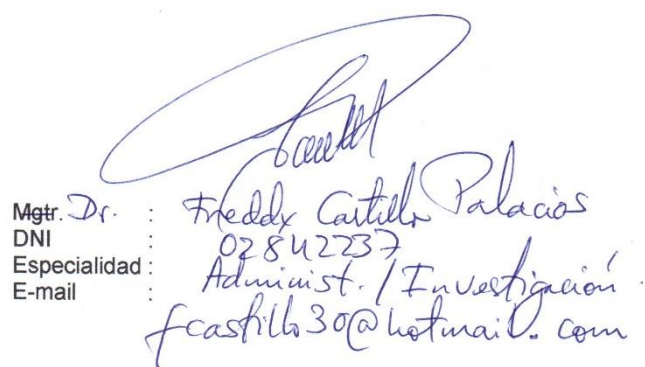 Mgtr. Dr. : Freddy Castillo Palacios
DNI : 02842237
Especialidad : Administ. / Investigación
E-mail : fcastillo30@hotmail.com